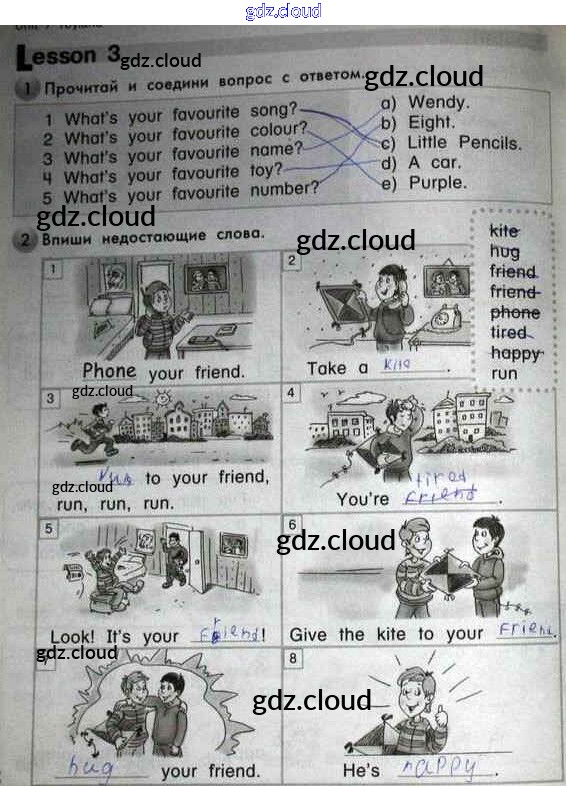 gdz.cloud
Lesson 3
gdz.cloud
gdz.cloud
1 Прочитай и соедини вопрос с ответом.
1 What's your favourite song?
2 What's your favourite colour?
3 What's your favourite name?
4 What's your favourite toy?
5 What's your favourite number?
a) Wendy.
b) Eight.
c) Little Pencils.
d) A car.
e) Purple.
gdz.cloud
gdz.cloud
2 Впиши недостающие слова.
gdz.cloud
kite
hug
friend
friend
phone
tired
happy
run
1
Phone your friend.
2
Take a kite.
gdz.cloud
3
run to your friend,
run, run, run.
gdz.cloud
4
gdz.cloud
tired
You're friend.
5
gdz.cloud
Look! It's your friend!
6
gdz.cloud
Give the kite to your friend.
gdz.cloud
hug your friend.
8
gdz.cloud
He's happy.